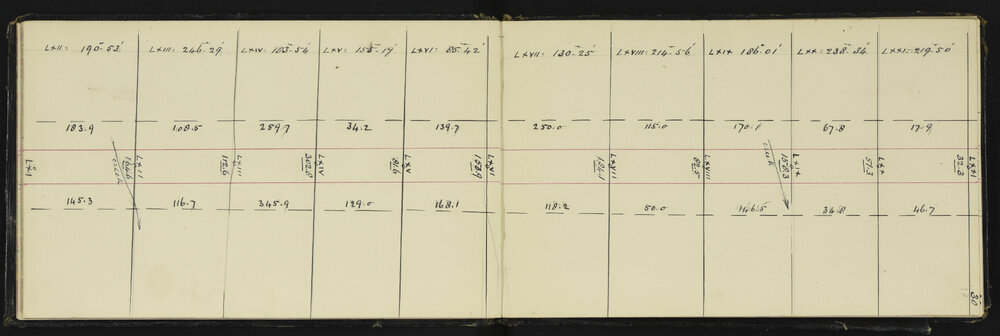 LXII = 190°-53' LXIII = 246°-29' LXIV = 183°-54' LXV = 153°-17' LXVI = 85°-42' LXVII = 130°-25' LXVIII = 214°-56' LXIX 186°-01' LXX = 238°-34' LXXI = 219°-50'
183.9 108.5 259.7 34.2 139.7 250.0 115.0 170.1 67.8 17.9
LXI
creek
164.6
LXII
112.6
LXIII
302.8
LXIV
81.6
LXV
153.9
LXVI
184.1
LXVII
82.5
LXVIII
creek
158.3
LXIX
51.3
LXX
32.3
LXXI
145.3 116.7 345.9 129.0 168.1 118.2 50.0 146.5 34.8 46.7
30